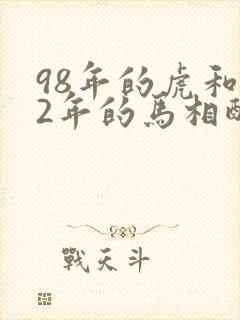 98年的虎和
2年的馬相
戰天斗